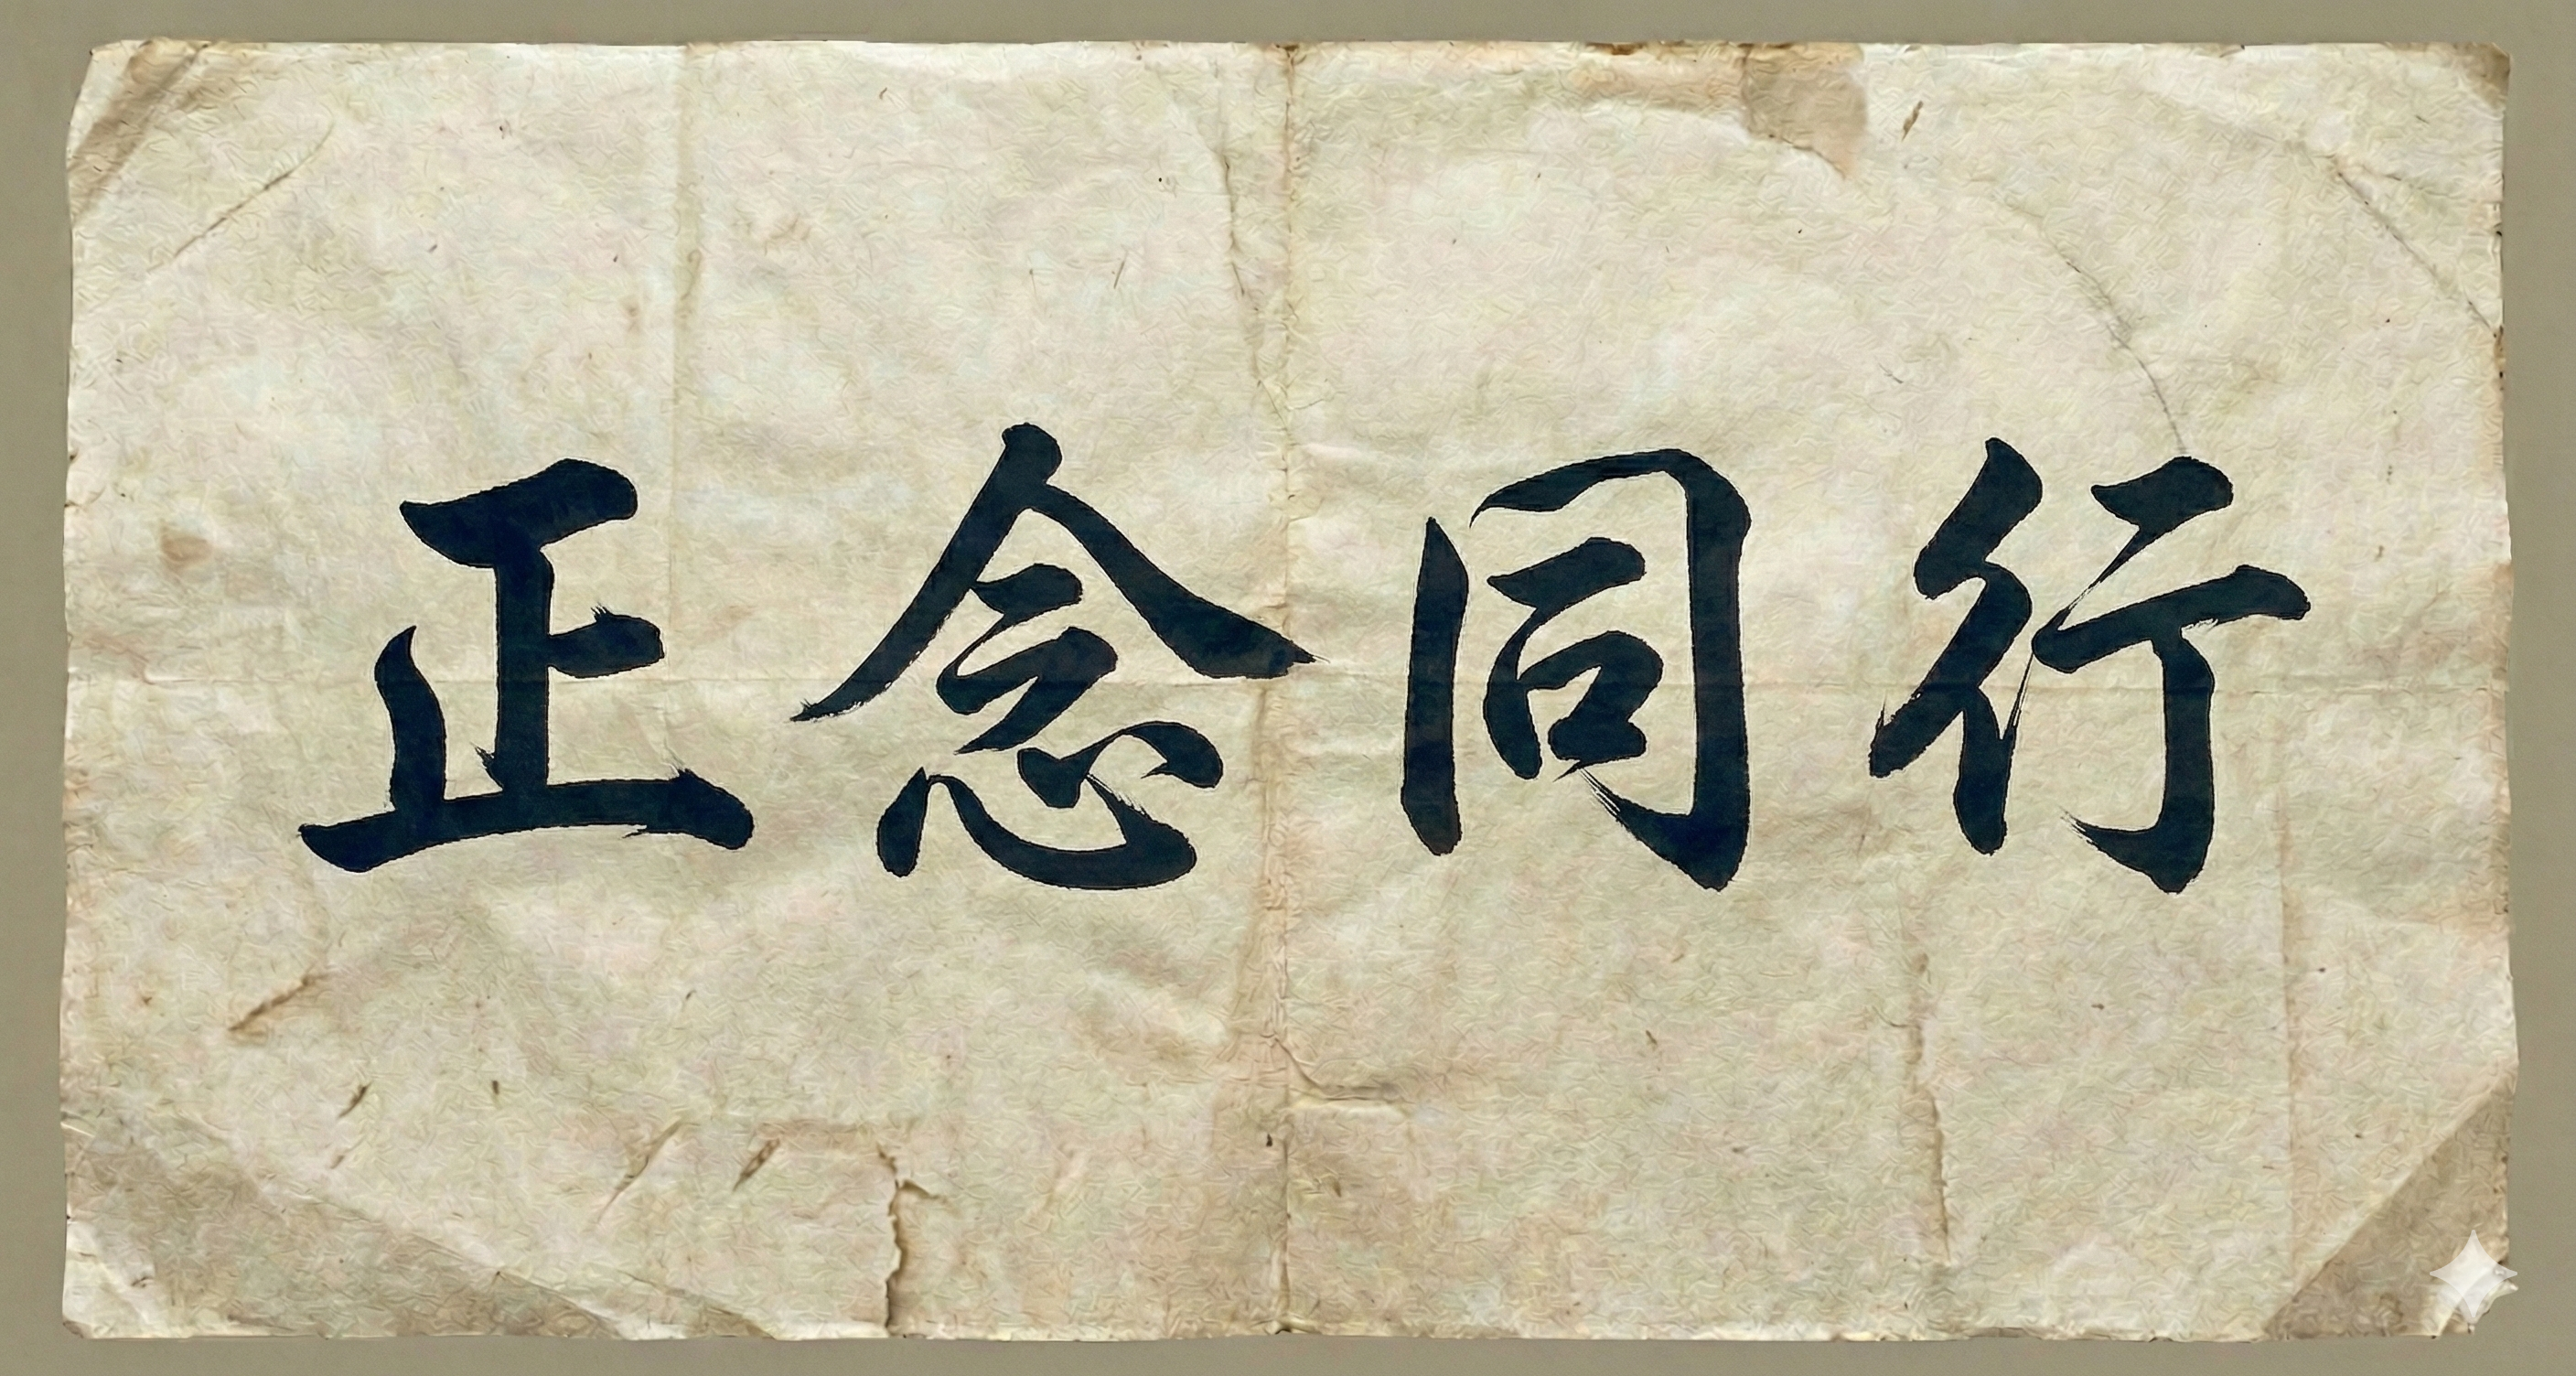 正念同行